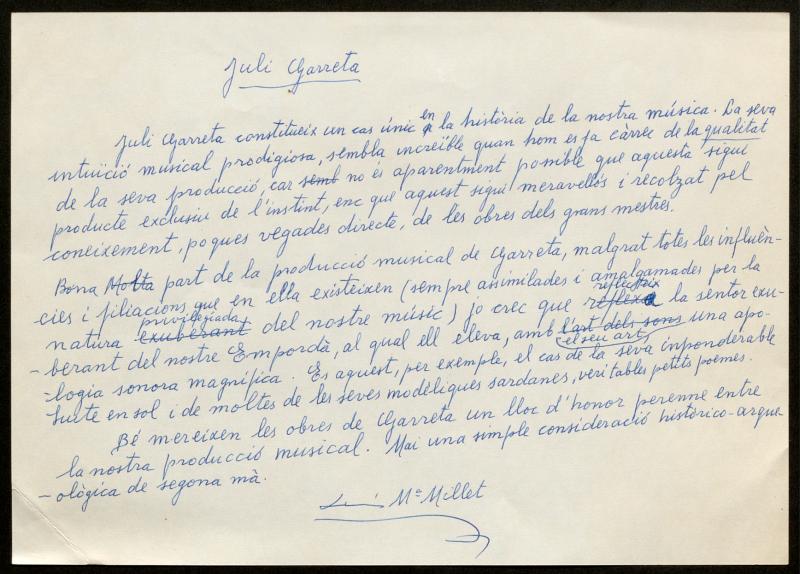 Juli Garreta
Juli Garreta constitueix un cas únic en la història de la nostra música. La seva
intuïció musical prodigiosa, sembla increïble quan hom es fa càrrec de la qualitat
de la seva producció, car semb no és aparentment possible que aquesta sigui
producte exclusiu de l'instint, enc que aquest sigui meravellós i recolzat pel
coneixement, poques vegades directe, de les obres dels grans mestres.
Bona Molta part de la producció musical de Garreta, malgrat totes les influèn-
cies i filiacions que en ella existeixen (sempre assimilades i amalgamades per la
natura exuberant privilegiada del nostre músic) jo crec que reflexa reflecteix la sentor exu-
-berant del nostre Empordà, al qual ell eleva, amb l'art dels sons el seu art una apo-
-logia sonora magnífica. Es aquest, per exemple, el cas de la seva inponderable
Suite en sol i de moltes de les seves modèliques sardanes, veritables petits poemes.
Bé mereixen les obres de Garreta un lloc d'honor perenne entre
la nostra producció musical. Mai una simple consideració històrico-arque
-ològica de segona mà.
Lluís Mª Millet